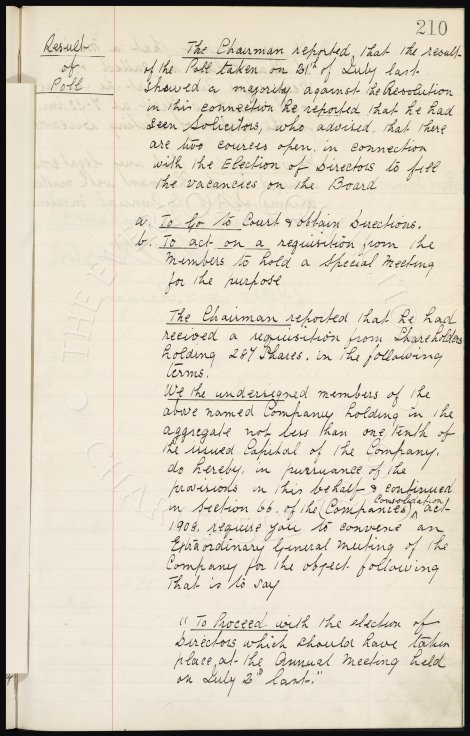 210
Result
of
Poll
The Chairman reported, that the result
of the Poll taken on 21st of July last
showed a majority against the Resolution
in this connection he reported that he had
seen Solicitors, who advised that there
are two courses open, in connection
with the Election of Directors to fill
the vacancies on the Board
a. To Go to Court & obtain Directions.
b. To act on a requisition from the
Members to hold a Special Meeting
for the purpose
The Chairman reported that he had
recieved a requisition from Shareholders
holding 287 Shares. in the following
terms.
We the undersigned members of the
above named Company holding in the
aggregate not less than one tenth of
the issued Capital of the Company.
do hereby, in pursuance of the
provisions in this behalf & continued
in Section 66. of the (Companies) Consolidation act
1908, require you to convene an
Extraordinary General Meeting of the
Company for the object following
That is to say
"To Proceed with the election of
Directors which should have taken
place, at the Annual Meeting held
on July 2nd last."